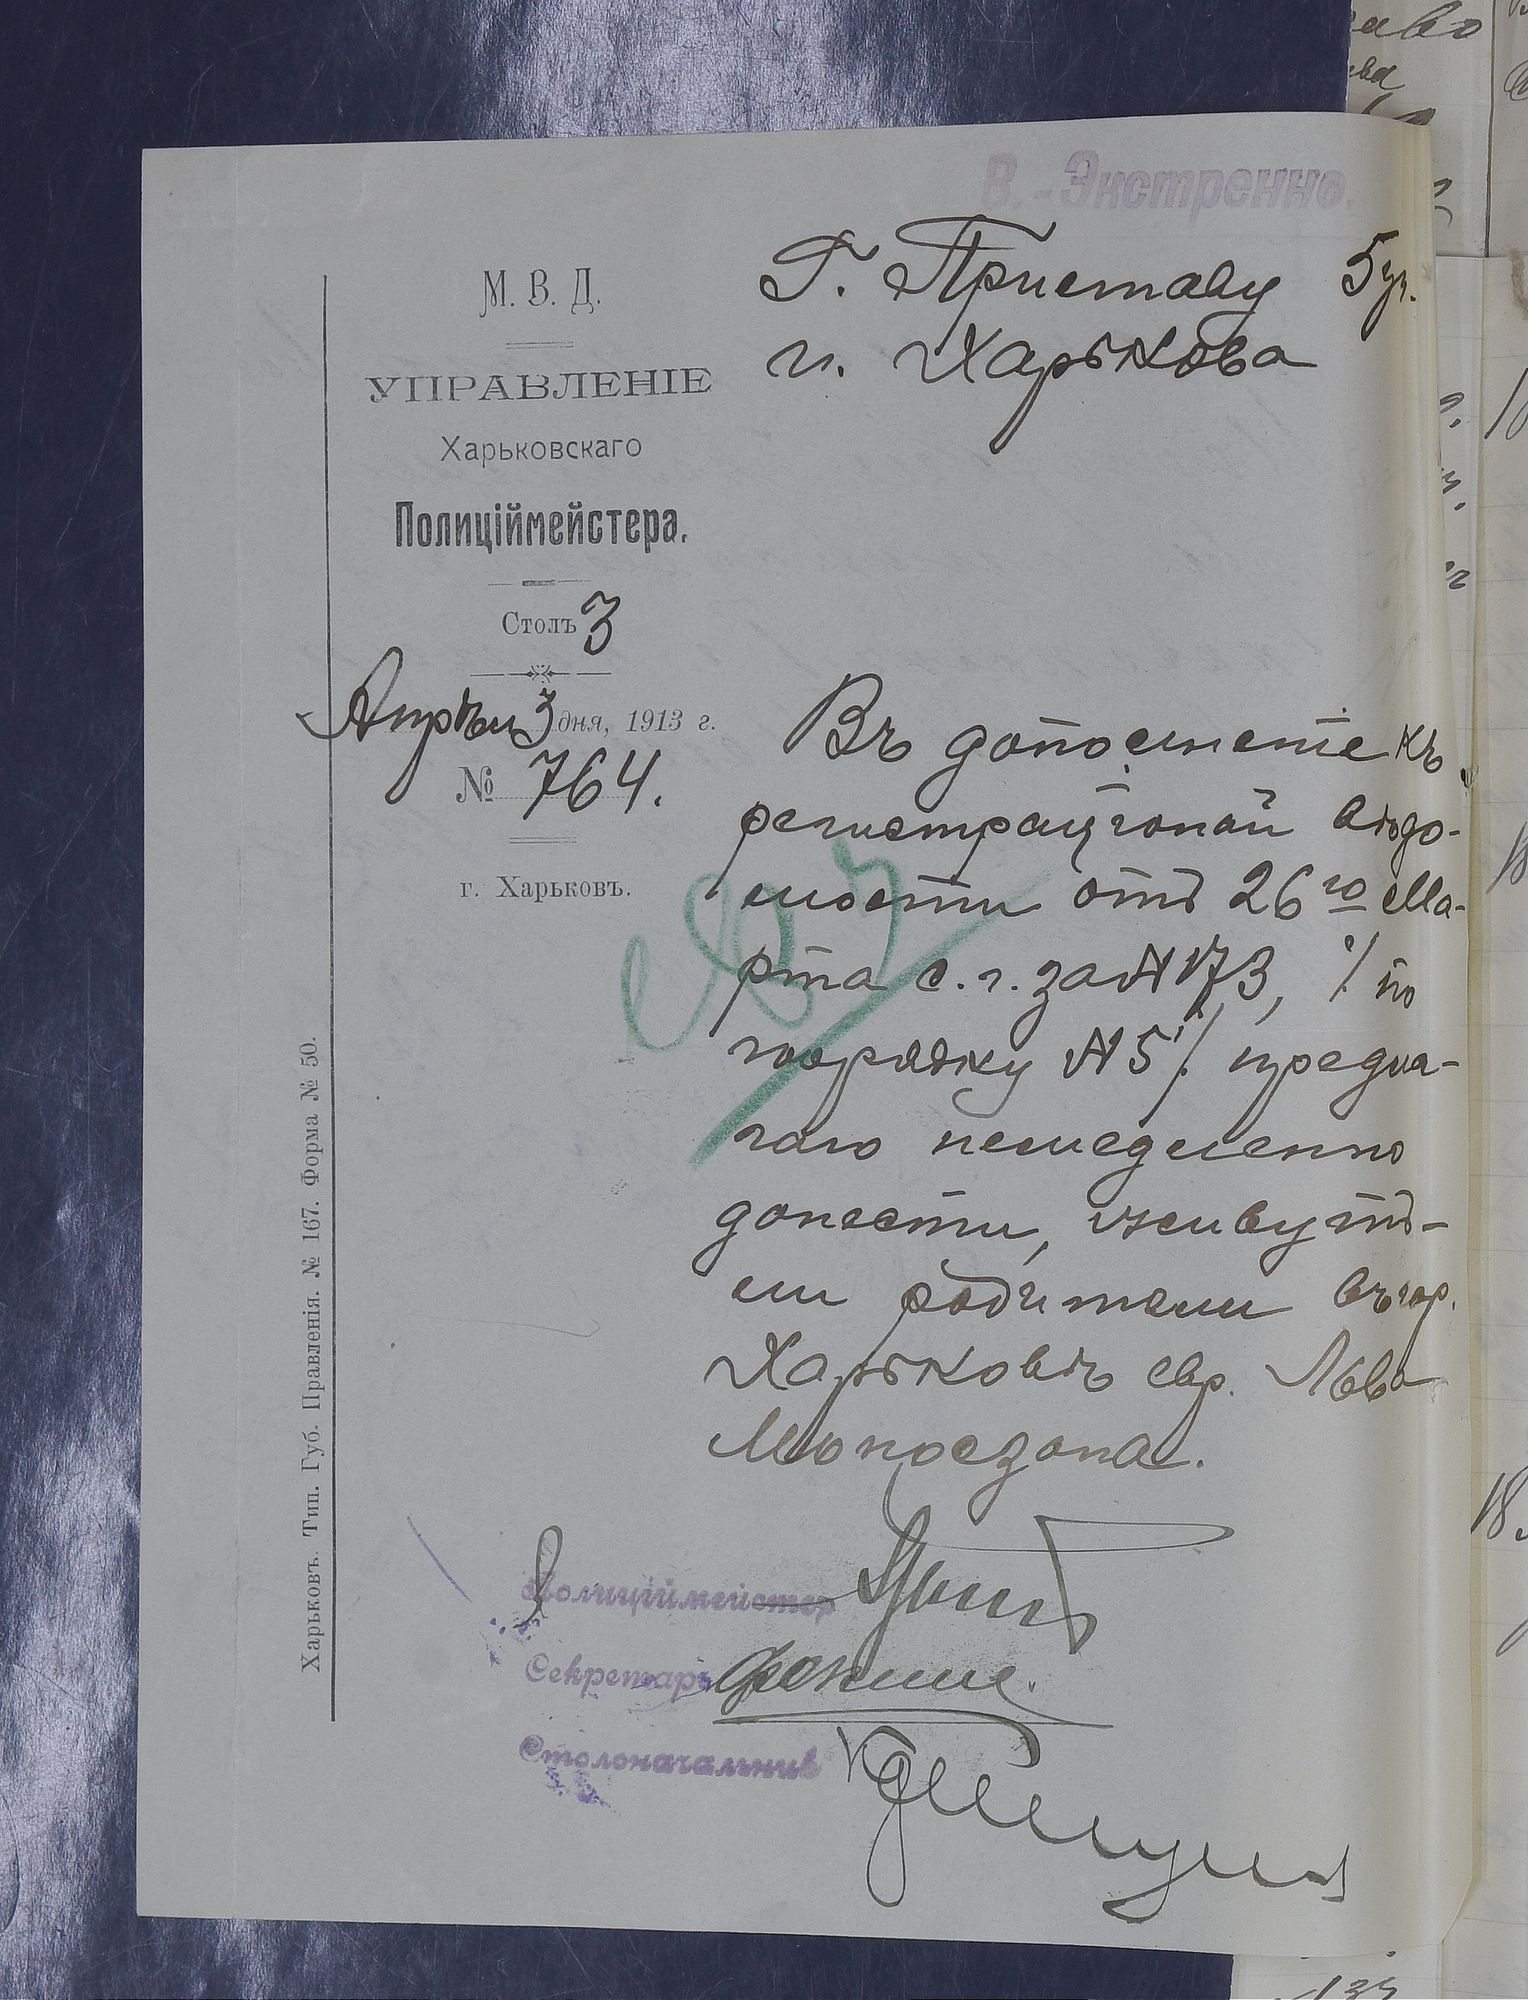 В.-Экстренно.
Г. Приставу 5 уч.
г. Харькова
М. В. Д.
УПРАВЛЕНІЕ
Харьковскаго
Полиціймейстера.
Столъ 3
Апрѣля 3 дня, 1913 г.
№ 764.
г. Харьковъ.
Въ дополненіе къ
регистраціонной вѣдо-
мости отъ 26го Ма-
рта с. г. за № 173, ·/. по
порядку № 5 ·/. предла-
гаю немедленно
донести, живутъ-
ли родители въ гор.
Харьковѣ евр. Льва
Мительзона.
Полиціймейстер
Секретарь
Столоначальник
Харьковъ. Тип. Губ. Правленія. № 167. Форма № 50.